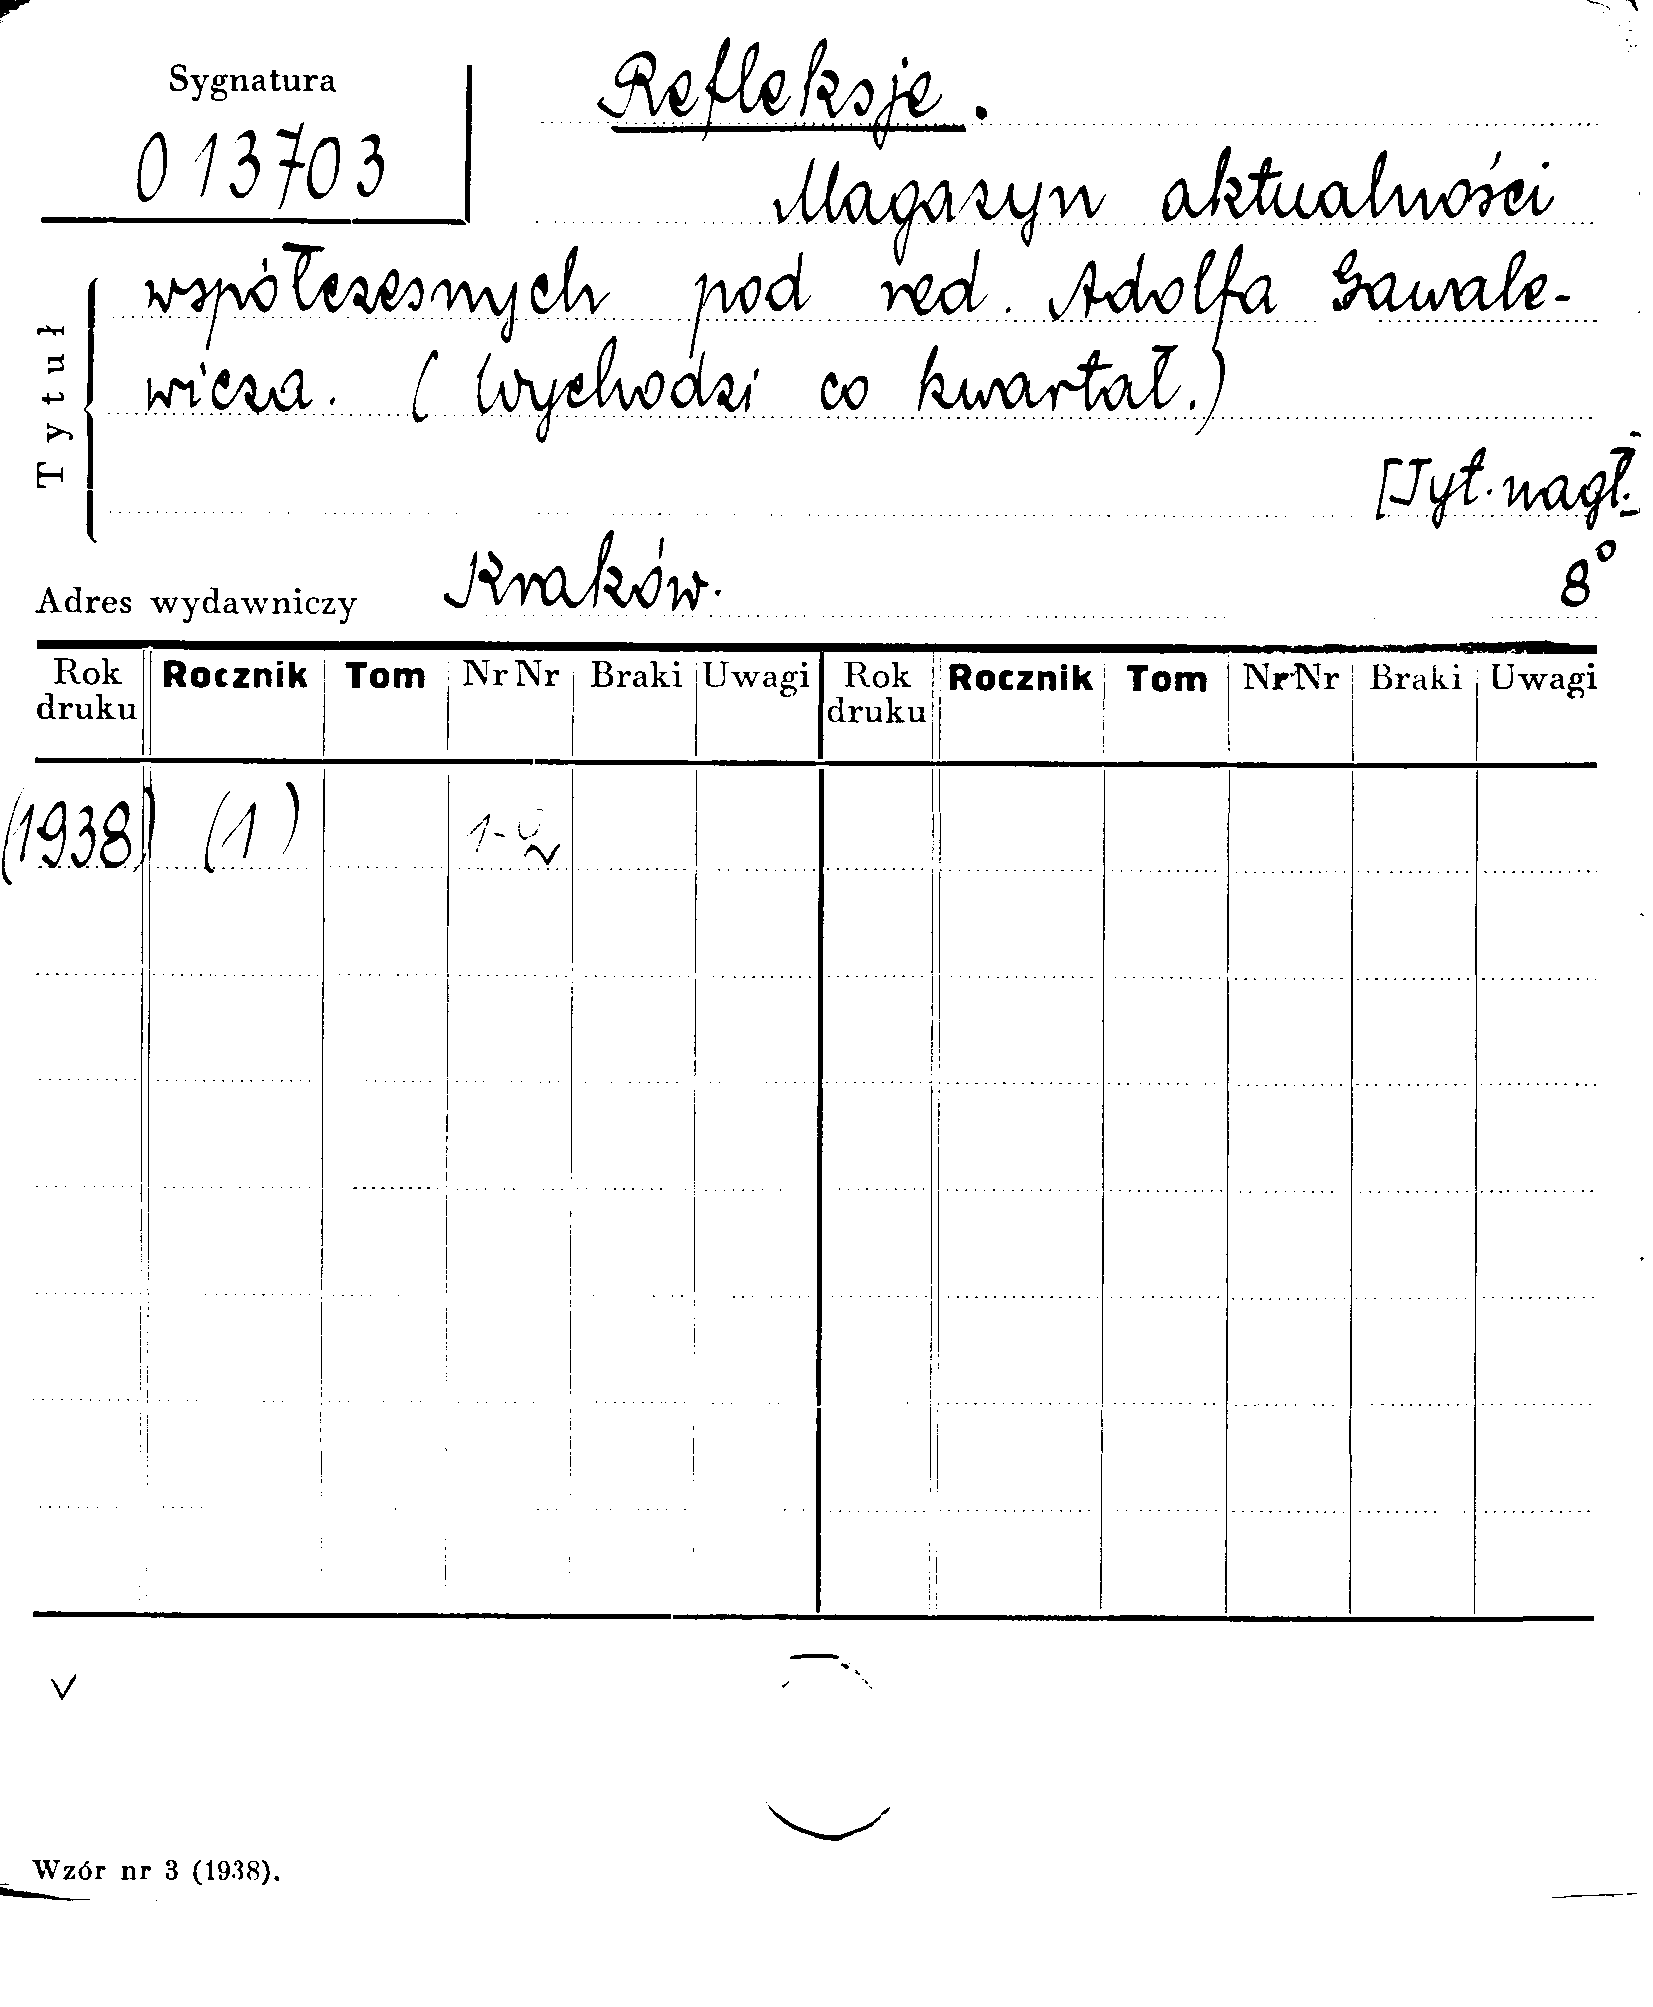 Sygnatura
013703
Refleksje.
Magazyn aktualności
współczesnych pod red. Adolfa Gawale-
wicza. (Wychodzi co kwartał.)
[Tyt. nagł.
Tytuł
Adres wydawniczy Kraków. 8°
Rok druku Rocznik Tom Nr Nr Braki Uwagi Rok druku Rocznik Tom Nr Nr Braki Uwagi
(1938) (1) 1-
Wzór nr 3 (1938).